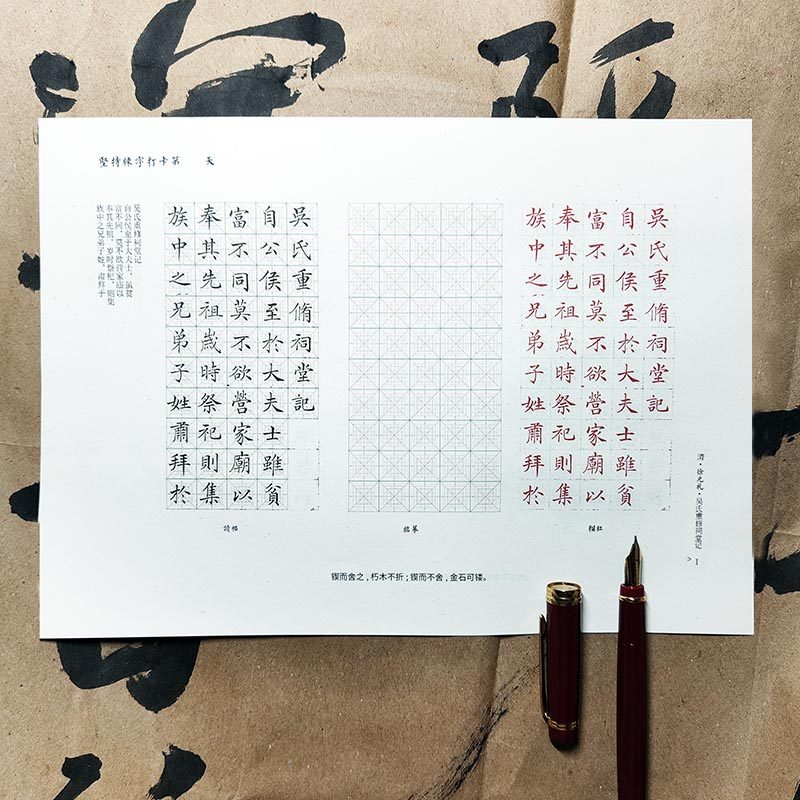 堅持練字打卡第 天
吴氏重修祠堂记
自公侯至于大夫士，虽贫
富不同，莫不欲营家庙以
奉其先祖，岁时祭祀，则集
族中之兄弟子姓，肃拜于
吳氏重脩祠堂記
自公侯至於大夫士雖貧
富不同莫不欲營家廟以
奉其先祖歲時祭祀則集
族中之兄弟子姓肅拜於
讀帖
臨摹
吳氏重脩祠堂記
自公侯至於大夫士雖貧
富不同莫不欲營家廟以
奉其先祖歲時祭祀則集
族中之兄弟子姓肅拜於
描紅
清·徐元礼·吴氏重修祠堂记
> 1
锲而舍之，朽木不折；锲而不舍，金石可镂。